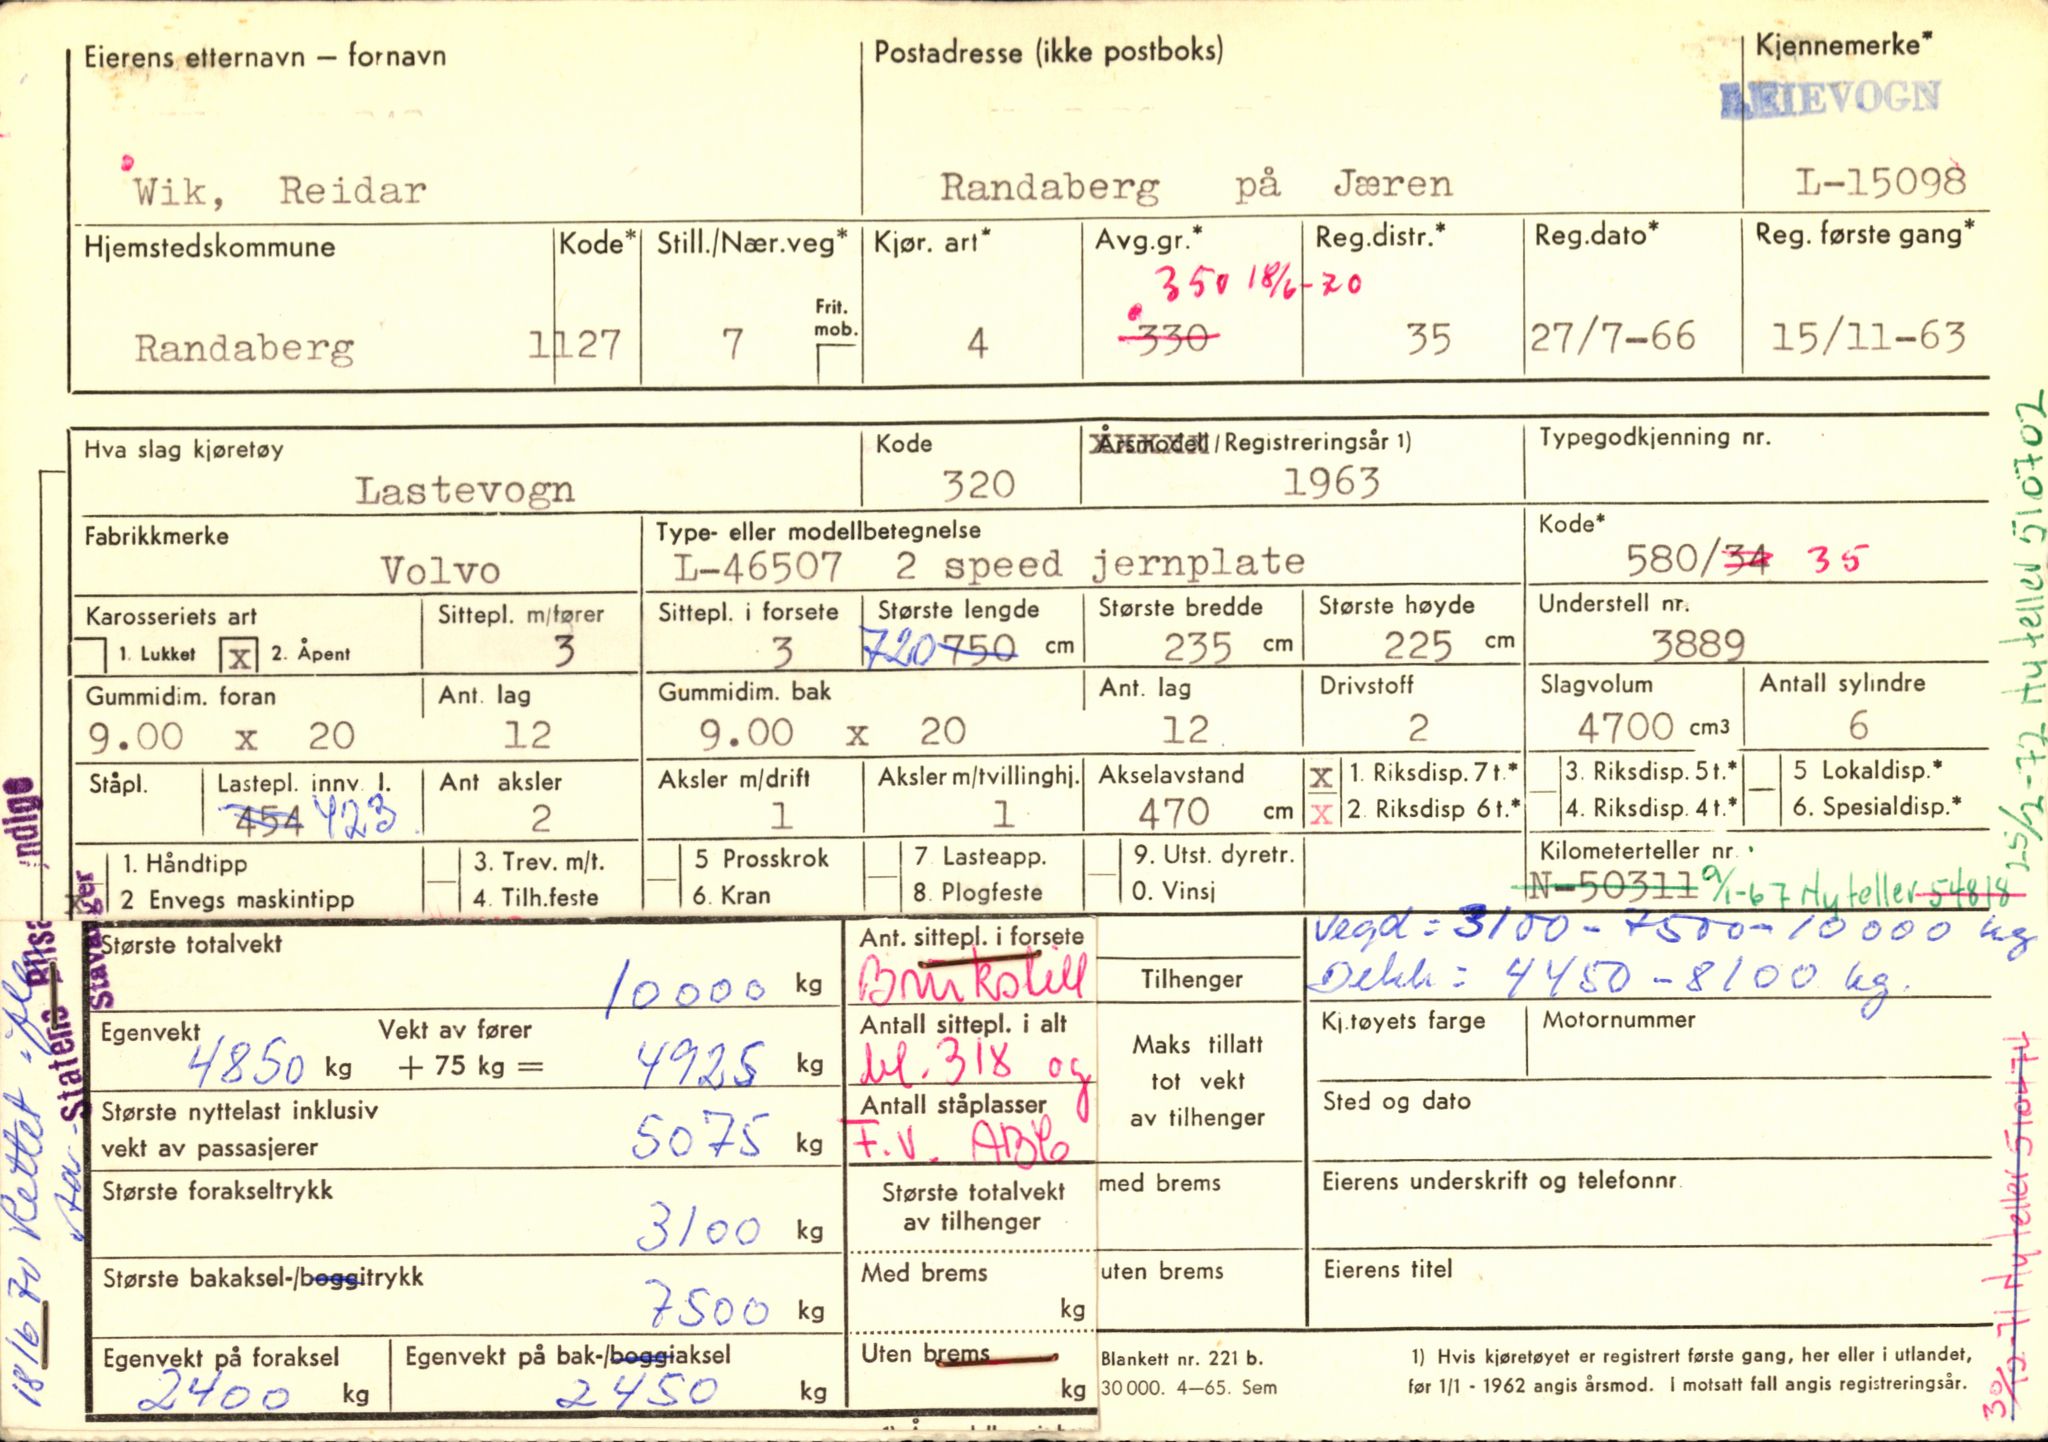 Eierens etternavn – fornavn
Postadresse (ikke postboks)
Kjennemerke*
LEIEVOGN
Wik, Reidar
Randaberg på Jæren
L-15098
Hjemstedskommune
Kode*
Still./Nær.veg*
Kjør. art*
Avg.gr.*
Reg.distr.*
Reg.dato*
Reg. første gang*
350 18/6-70
Frit. mob.
Randaberg
1127
7
4
330
35
27/7-66
15/11-63
Hva slag kjøretøy
Kode
Årsmodell/Registreringsår 1)
Typegodkjenning nr.
Lastevogn
320
1963
Fabrikkmerke
Type- eller modellbetegnelse
Kode*
Volvo
L-46507 2 speed jernplate
580/34 35
Karosseriets art
Sittepl. m/fører
Sittepl. i forsete
Største lengde
Største bredde
Største høyde
Understell nr.
1. Lukket x 2. Åpent
3
3
720 750 cm
235 cm
225 cm
3889
Gummidim. foran
Ant. lag
Gummidim. bak
Ant. lag
Drivstoff
Slagvolum
Antall sylindre
9.00 x 20
12
9.00 x 20
12
2
4700 cm3
6
Ståpl.
Lastepl. innv. l.
Ant aksler
Aksler m/drift
Aksler m/tvillinghj.
Akselavstand
x 1. Riksdisp. 7 t.*
3. Riksdisp. 5 t.*
5 Lokaldisp.*
454 423
2
1
1
470 cm
x 2. Riksdisp 6 t.*
4. Riksdisp. 4 t.*
6. Spesialdisp.*
1. Håndtipp
3. Trev. m/t.
5 Prosskrok
7 Lasteapp.
9. Utst. dyretr.
Kilometerteller nr.
x 2 Envegs maskintipp
4. Tilh.feste
6. Kran
8. Plogfeste
0. Vinsj
N-50311 9/1-67 Ny teller 54818
25/2-72 Ny teller 510702
Største totalvekt
10000 kg
Ant. sittepl. i forsete
Brukstill
Tilhenger
Vegd = 3100 - 7500 - 10000 kg
Dekk = 4450 - 8100 kg.
Egenvekt
4850 kg
Vekt av fører
+ 75 kg =
4925 kg
Antall sittepl. i alt
bl. 318 og
Maks tillatt
tot vekt
av tilhenger
Kj.tøyets farge
Motornummer
Største nyttelast inklusiv
vekt av passasjerer
5075 kg
Antall ståplasser
F.V.
Sted og dato
Største forakseltrykk
3100 kg
Største totalvekt
av tilhenger
med brems
Eierens underskrift og telefonnr.
Største bakaksel-/boggitrykk
7500 kg
Med brems
kg
uten brems
Eierens titel
Egenvekt på foraksel
2400 kg
Egenvekt på bak-/boggiaksel
2450 kg
Uten brems
kg
Blankett nr. 221 b.
30 000. 4–65. Sem
1) Hvis kjøretøyet er registrert første gang, her eller i utlandet,
før 1/1 - 1962 angis årsmod. I motsatt fall angis registreringsår.
18/6 70 Rettet iflg
Statens
Stavanger
Ny teller 510474